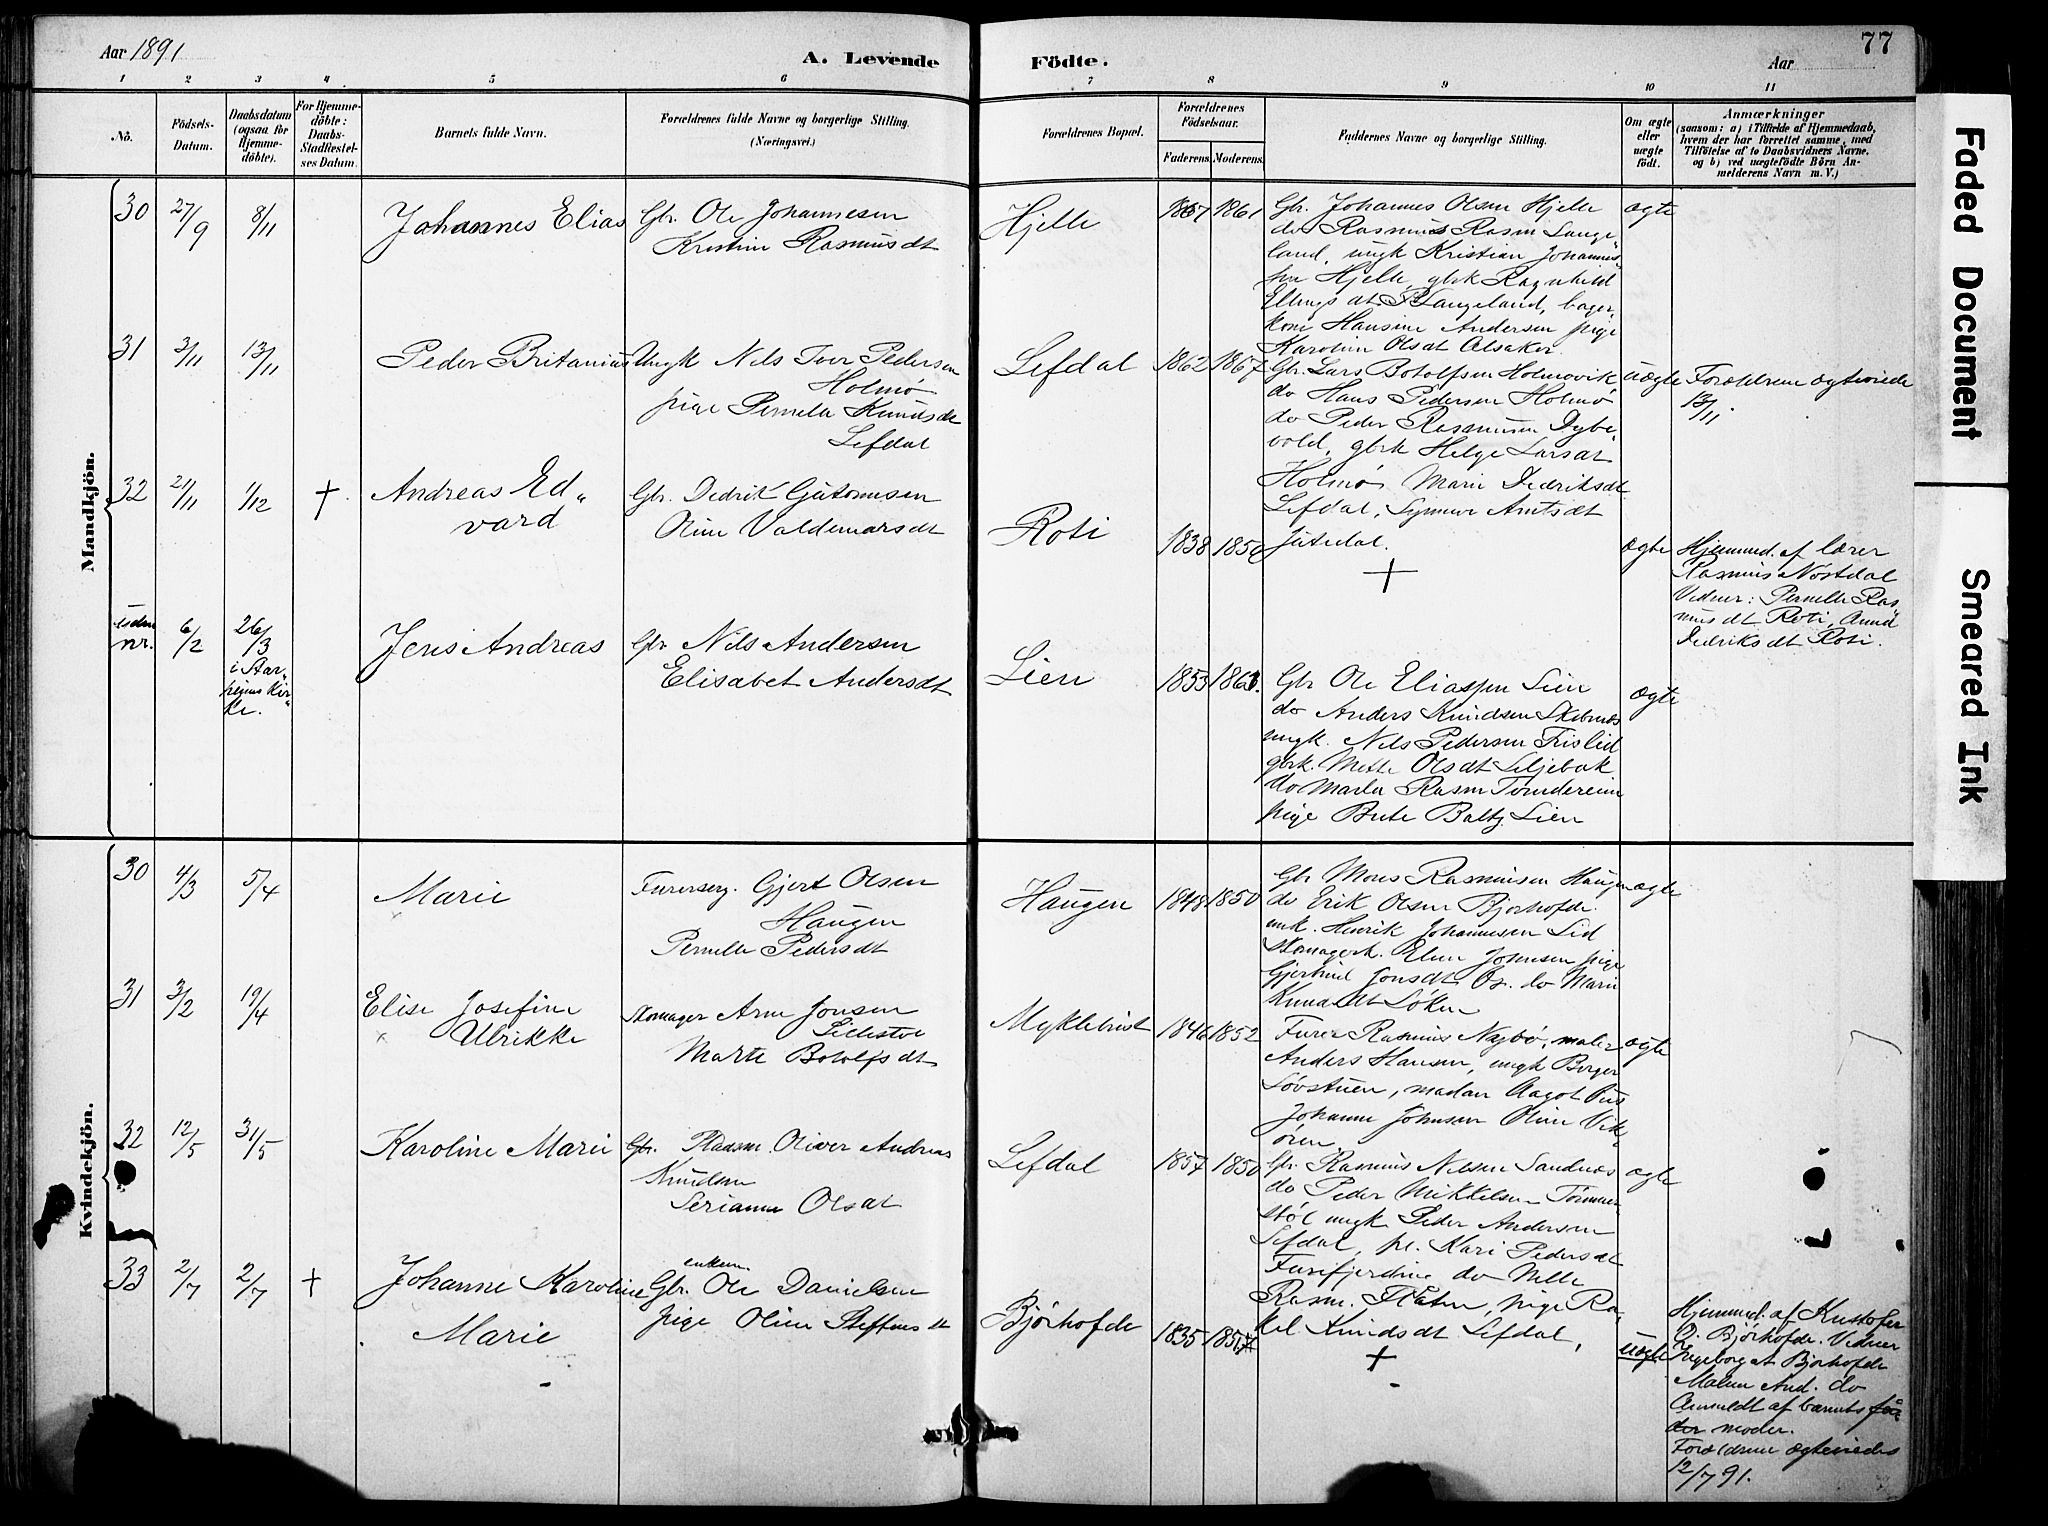 Aar 1891
A. Levende
Födte.
Aar
77
1 2 3 4 5 6 7 8 9 10 11
No.
Födsels-
Datum.
Daabsdatum
(ogsaa for
Hjemme-
döbte).
For Hjemme-
döbte:
Daabs-
Stadfæstel-
ses Datum.
Barnets fulde Navn.
Forældrenes fulde Navne og borgerlige Stilling.
(Næringsvei.)
Forældrenes Bopæl.
Forældrenes
Födselsaar.
Faderens.
Moderens.
Faddernes Navne og borgerlige Stilling.
Om ægte
eller
uægte
født.
Anmærkninger
(saasom: a) i Tilfælde af Hjemmedaab,
hvem der har forrettet samme, med
Tilföielse af to Daabsvidners Navne,
og b) ved uægtefödte Börn An-
melderens Navn m. V.)
Mandkjön.
30 27/9 8/11 Johannes Elias
Gbr. Ole Johannesen
Kristine Rasmusdt
Hjelle 1867 1861
Gbr. Johannes Olsen Hjelle
do Rasmus Rasm Lange-
land, ungk Kristian Johannes-
sen Hjelle, gbrk Ragnhild
Ellingsdt Langeland, bager-
kone Hansine Andersen pige
Karoline Olsdt Alsaker.
ægte
31 3/11 13/11 Peder Britanius
Ungk Nils Iver Pedersen
Holmø
pige Pernela Knudsdt
Lefdal
Lefdal 1862 1867
Gbr. Lars Botolfsen Holmøvik
do Hans Pedersen Holmø
do Peder Rasmusen Dybe-
vold, gbrk Helge Larsdt
Holmø, Marie Dedriksdt
Lefdal, Synneve Antsdt
Jutedal.
uægte
Forældrene ægteviede
13/11
32 21/11 1/12 † Andreas Ed-
vard
Gbr. Dedrik Guttormsen
Oline Valdemarsdt
Roti 1838 1850
†
ægte
Hjemmed. af lærer
Rasmus Nøstdal
Vidner: Pernille Ras-
musdt Roti, Anna
Dedriksdt Roti.
Uden
nr. 6/2 26/3
i Aar-
heims Kir-
ke.
Jens Andreas
Gbr Nils Andersen
Elisabet Andersdt
Lien 1853 1861.
Gbr Ole Eliassen Lien
do Anders Knudsen Skibenes
ungk. Nils Pedersen Frislid
gbrk. Mette Olsdt Seljebak
do Marta Rasm Tondereim
pige Brite Baltz. Lien
ægte
Kvindekjön.
30 4/3 5/4 Marie
Furerserg. Gjert Olsen
Haugen
Pernille Pedersdt
Haugen 1848 1850
Gbr Mons Rasmusen Haugen
do Erik Olsen Bjørhofde
unk. Henrik Johannesen Lid
Skomagerk. Elen Johnsen pige
Gjertrud Jonsdt Os. do Marie
Knudsdt Løken
ægte
31 3/2 19/4 Elise Josefine
Ulrikke
Skomager Arne Jonsen
Lillestøl
Marte Botolfsdt
Myklebust 1846 1852
Furer Rasmus Nagbø, maler
Anders Hansen, ungk Berger
Løvstuen, madam Aagot
Johanne Johnsen Oline Vik-
ören
ægte
32 12/5 31/5 Karoline Marie
Gbr. Pladsm. Oliver Andreas
Knudsen
Serianna Olsdt
Lefdal 1857 1850
Gbr. Rasmus Nilsen Sandnes
do Peder Mikkelsen Tømmer-
støl ungk Peder Andersen
Lefdal, pe. Kari Pedersdt
Furefjerding do Nille
Rasm. Flaten, pige Ra-
kel Knudsdt Lefdal,
ægte
33 2/7 2/7 † Johanne Karoline
Marie
enkem.
Gbr. Ole Danielsen
pige Oline Steffensdt
Bjørhofde 1835 1857
†
uægte
Hjemmed. af Kristofer
O. Bjørhofde. Vidner
Ingeborg dt Bjørhofde
Malene And. do
Anmeldt af barnets faa
der moder.
Forældrene ægteviedes
12/7 91.
Faded Document
Smeared Ink